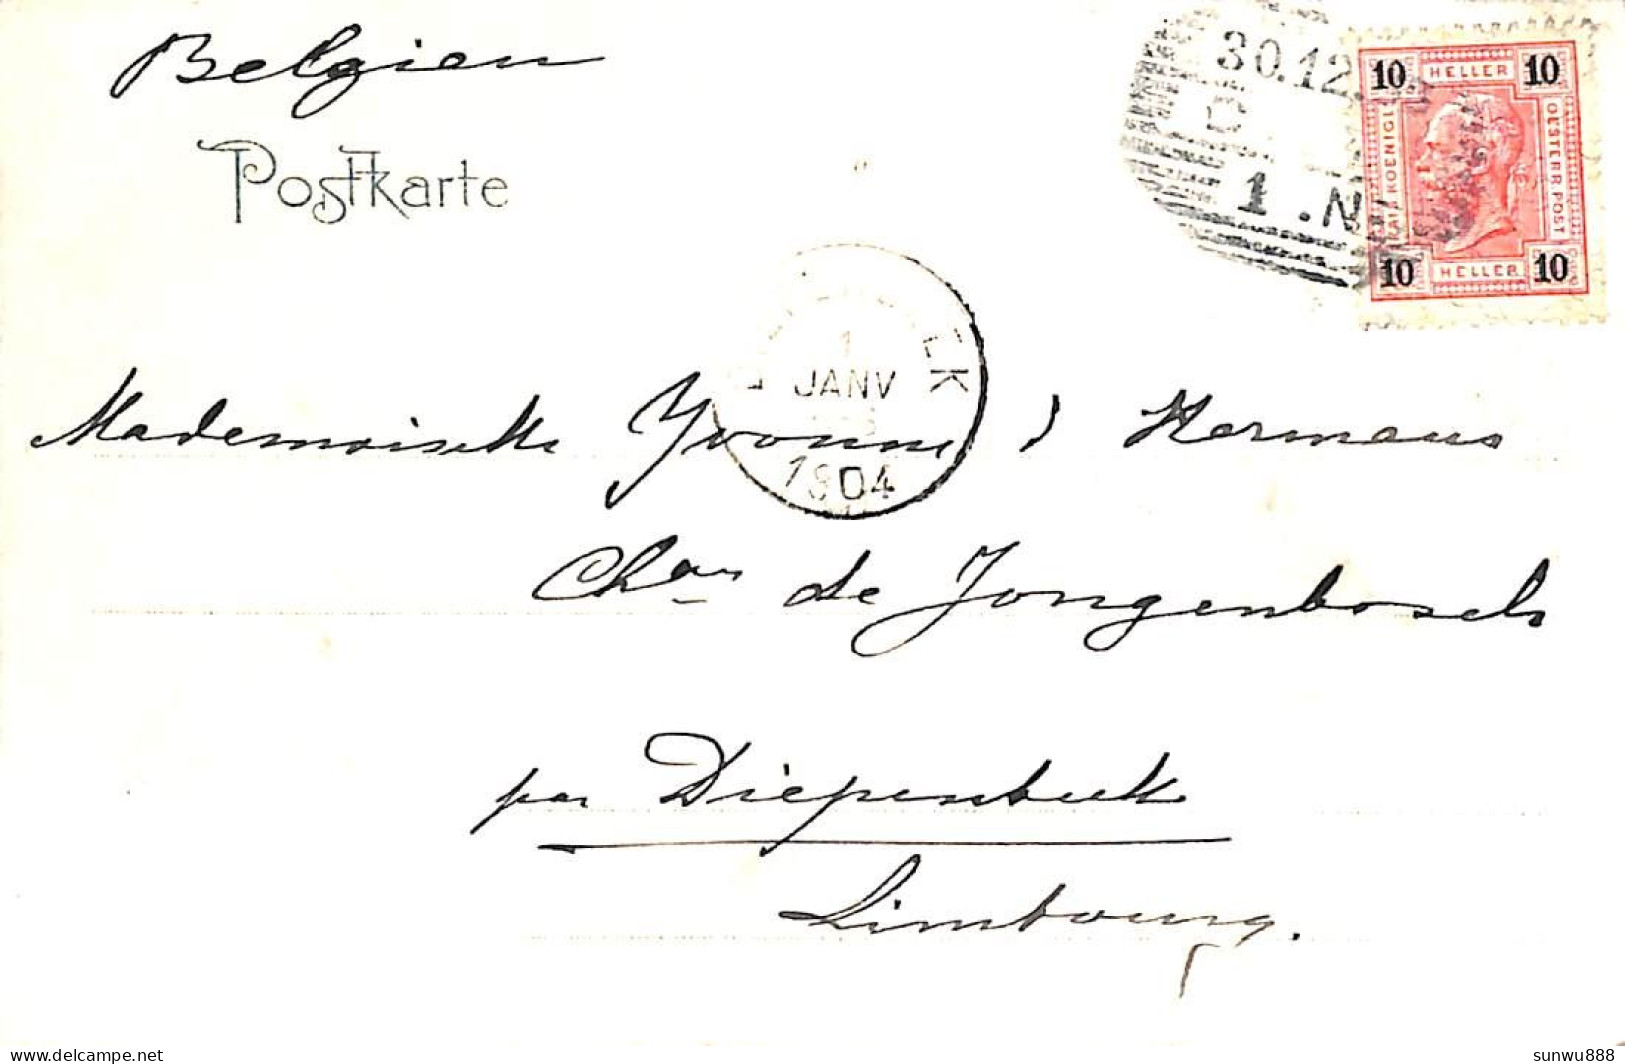 Belgien
Postkarte
30.12.
1.N
10 HELLER 10
KAIS. KOENIGL.
OESTERR. POST
10 HELLER 10
1
JANV
1904
Mademoiselle Yvonne Hermans
Chau de Jongenbosch
par Diepenbeek
Limbourg.
delcampe.net
sunwu888